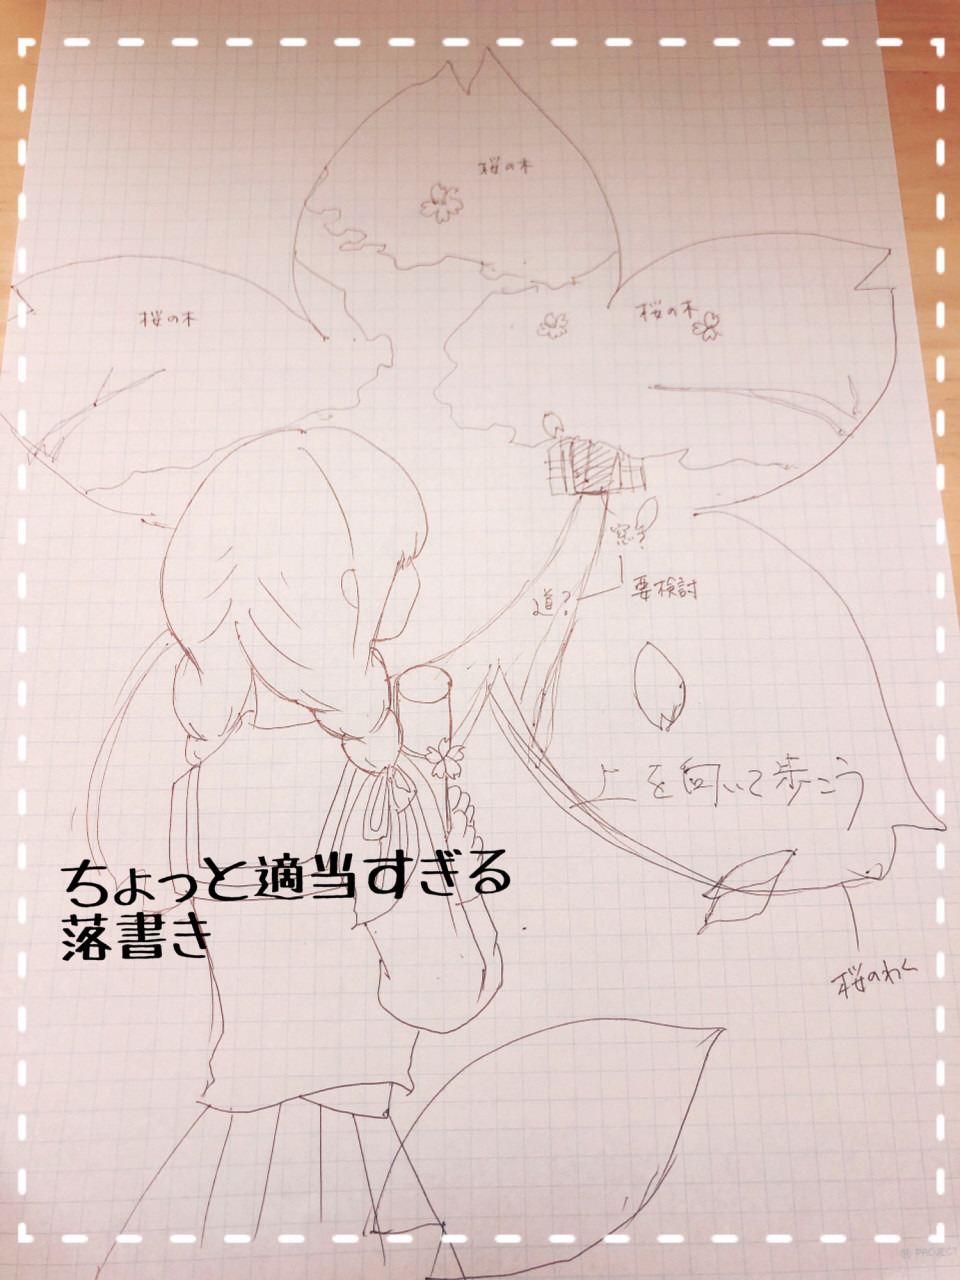 桜の木
桜の木
桜の木
道?
要検討
上を向いて歩こう
ちょっと適当すぎる
落書き
桜のわく
PROJECT